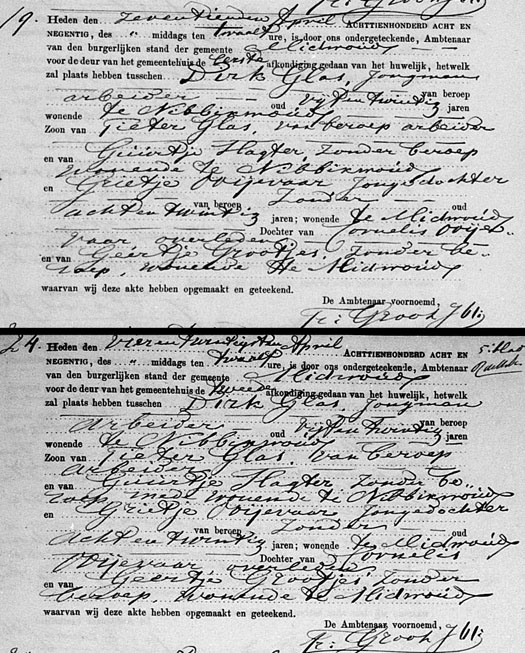 19. Heden den zeventienden April ACHTTIENHONDERD ACHT EN
NEGENTIG, des „ middags ten twaalf ure, is door ons ondergeteekende, Ambtenaar
van den burgerlijken stand der gemeente Midwoud
voor de deur van het gemeentehuis de eerste afkondiging gedaan van het huwelijk, hetwelk
zal plaats hebben tusschen Dirk Glas, Jongman
arbeider van beroep
oud vijf en twintig jaren
wonende te Nibbixwoud
Zoon van Pieter Glas, van beroep arbeider
en van Guurtje Hagter, zonder beroep
wonende te Nibbixwoud
en Grietje Ooijevaar Jongedochter
zonder
van beroep oud
acht en twintig jaren; wonende te Midwoud
Dochter van Cornelis Ooije-
vaar, overleden
en van Geertje Grootjes, zonder be-
roep, wonende te Midwoud
waarvan wij deze akte hebben opgemaakt en geteekend.
De Ambtenaar voornoemd,
24. Heden den vier en twintigsten April ACHTTIENHONDERD ACHT EN
NEGENTIG, des „ middags ten twaalf ure, is door ons ondergeteekende, Ambtenaar
van den burgerlijken stand der gemeente Midwoud
voor de deur van het gemeentehuis de tweede afkondiging gedaan van het huwelijk, hetwelk
zal plaats hebben tusschen Dirk Glas Jongman
arbeider van beroep
oud vijf en twintig jaren
wonende te Nibbixwoud
Zoon van Pieter Glas, van beroep
arbeider
en van Guurtje Hagter zonder be-
roep, mede wonende te Nibbixwoud
en Grietje Ooijevaar Jongedochter
zonder
van beroep oud
acht en twintig jaren; wonende te Midwoud
Dochter van Cornelis
Ooijevaar overleden
en van Geertje Grootjes zonder
beroep, wonende te Midwoud
waarvan wij deze akte hebben opgemaakt en geteekend.
De Ambtenaar voornoemd,